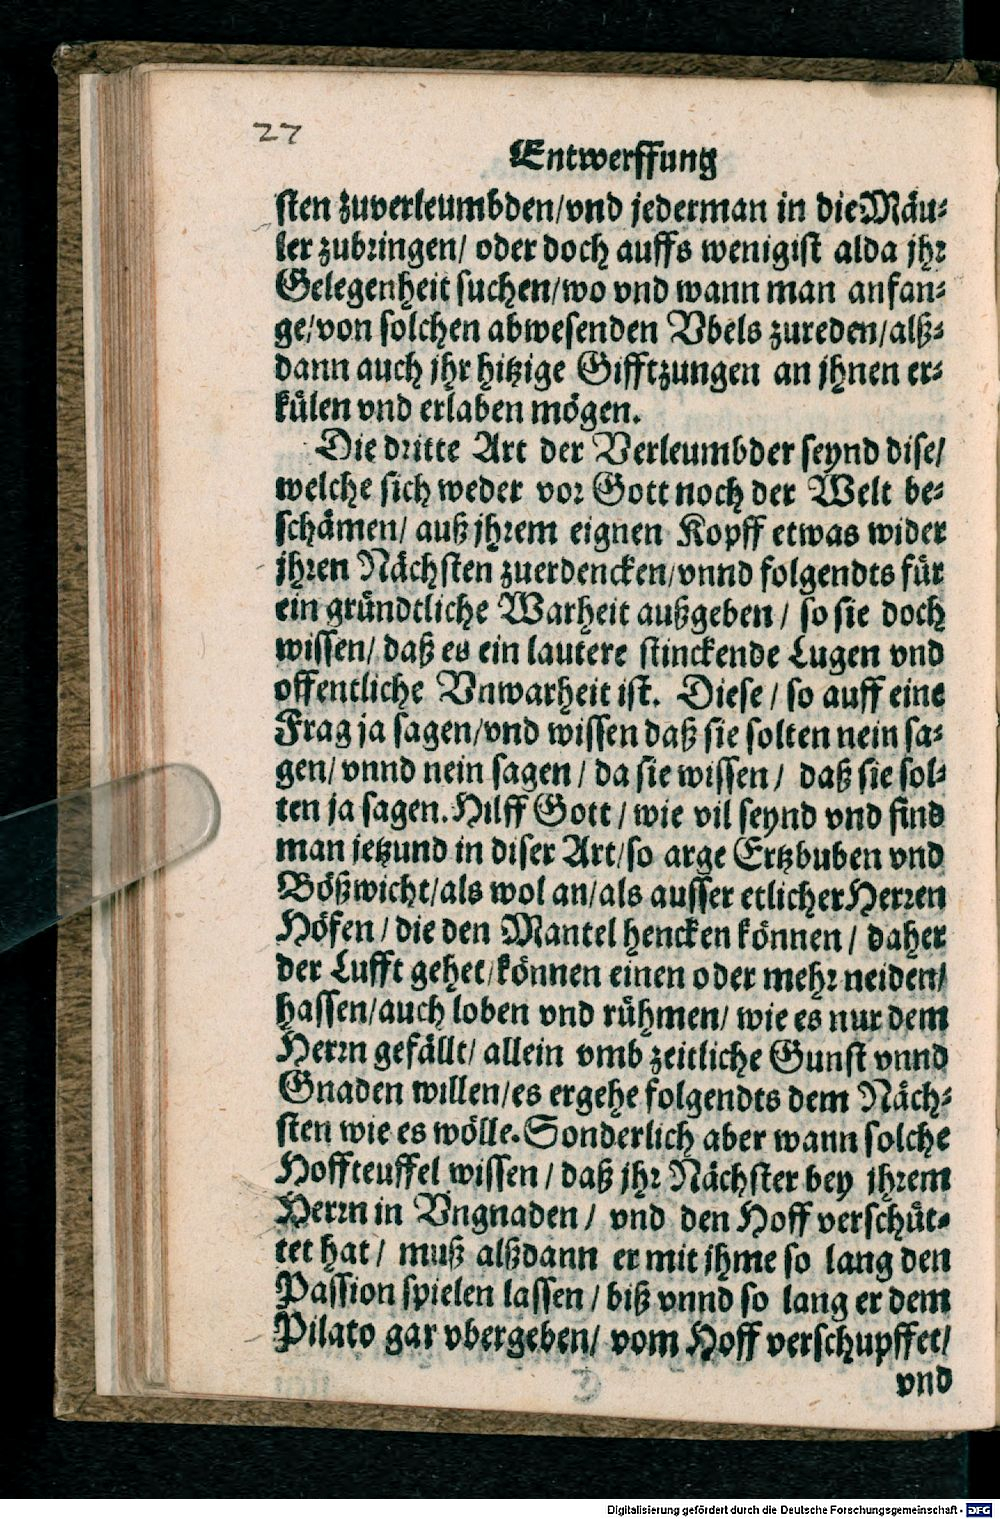 27
Entwerffung
sten zuverleumbden/vnd jederman in die Mäu-
ler zubringen/ oder doch auffs wenigist alda jhr
Gelegenheit suchen/wo vnd wann man anfan-
ge/von solchen abwesenden Vbels zureden/alß-
dann auch jhr hitzige Gifftzungen an jhnen er-
külen vnd erlaben mögen.
Die dritte Art der Verleumbder seynd dise/
welche sich weder vor Gott noch der Welt be-
schämen/ auß jhrem eignen Kopff etwas wider
jhren Nächsten zuerdencken/vnnd folgendts für
ein gründtliche Warheit außgeben / so sie doch
wissen/ daß es ein lautere stinckende Lugen vnd
offentliche Vnwarheit ist. Diese / so auff eine
Frag ja sagen/vnd wissen daß sie solten nein sa-
gen/ vnnd nein sagen / da sie wissen / daß sie sol-
ten ja sagen. Hilff Gott / wie vil seynd vnd find
man jetzund in diser Art/so arge Ertzbuben vnd
Bößwicht/als wol an/als ausser etlicher Herren
Höfen / die den Mantel hencken können / daher
der Lufft gehet/können einen oder mehr neiden/
hassen/auch loben vnd rühmen/ wie es nur dem
Herrn gefällt/ allein vmb zeitliche Gunst vnnd
Gnaden willen/es ergehe folgendts dem Näch-
sten wie es wölle. Sonderlich aber wann solche
Hoffteuffel wissen / daß jhr Nächster bey jhrem
Herrn in Vngnaden / vnd den Hoff verschüt-
tet hat / muß alßdann er mit jhme so lang den
Passion spielen lassen / biß vnnd so lang er dem
Pilato gar vbergeben/ vom Hoff verschupffet/
vnd
Digitalisierung gefördert durch die Deutsche Forschungsgemeinschaft - DFG